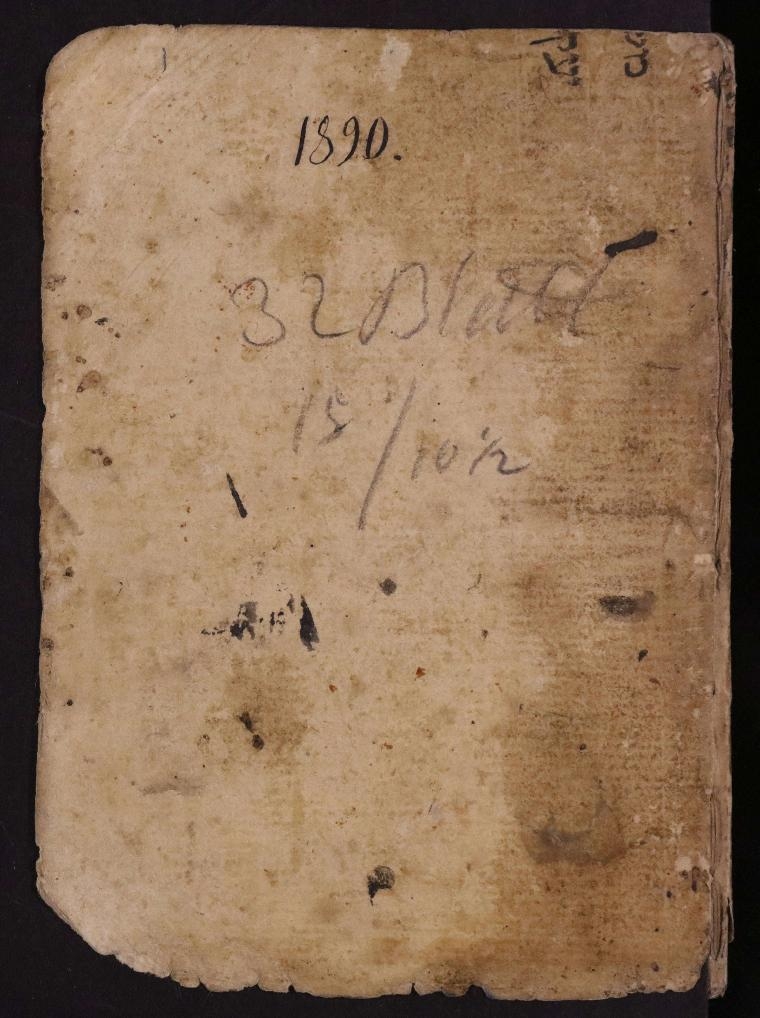 1890.
32 Blatt
15/10 1/2